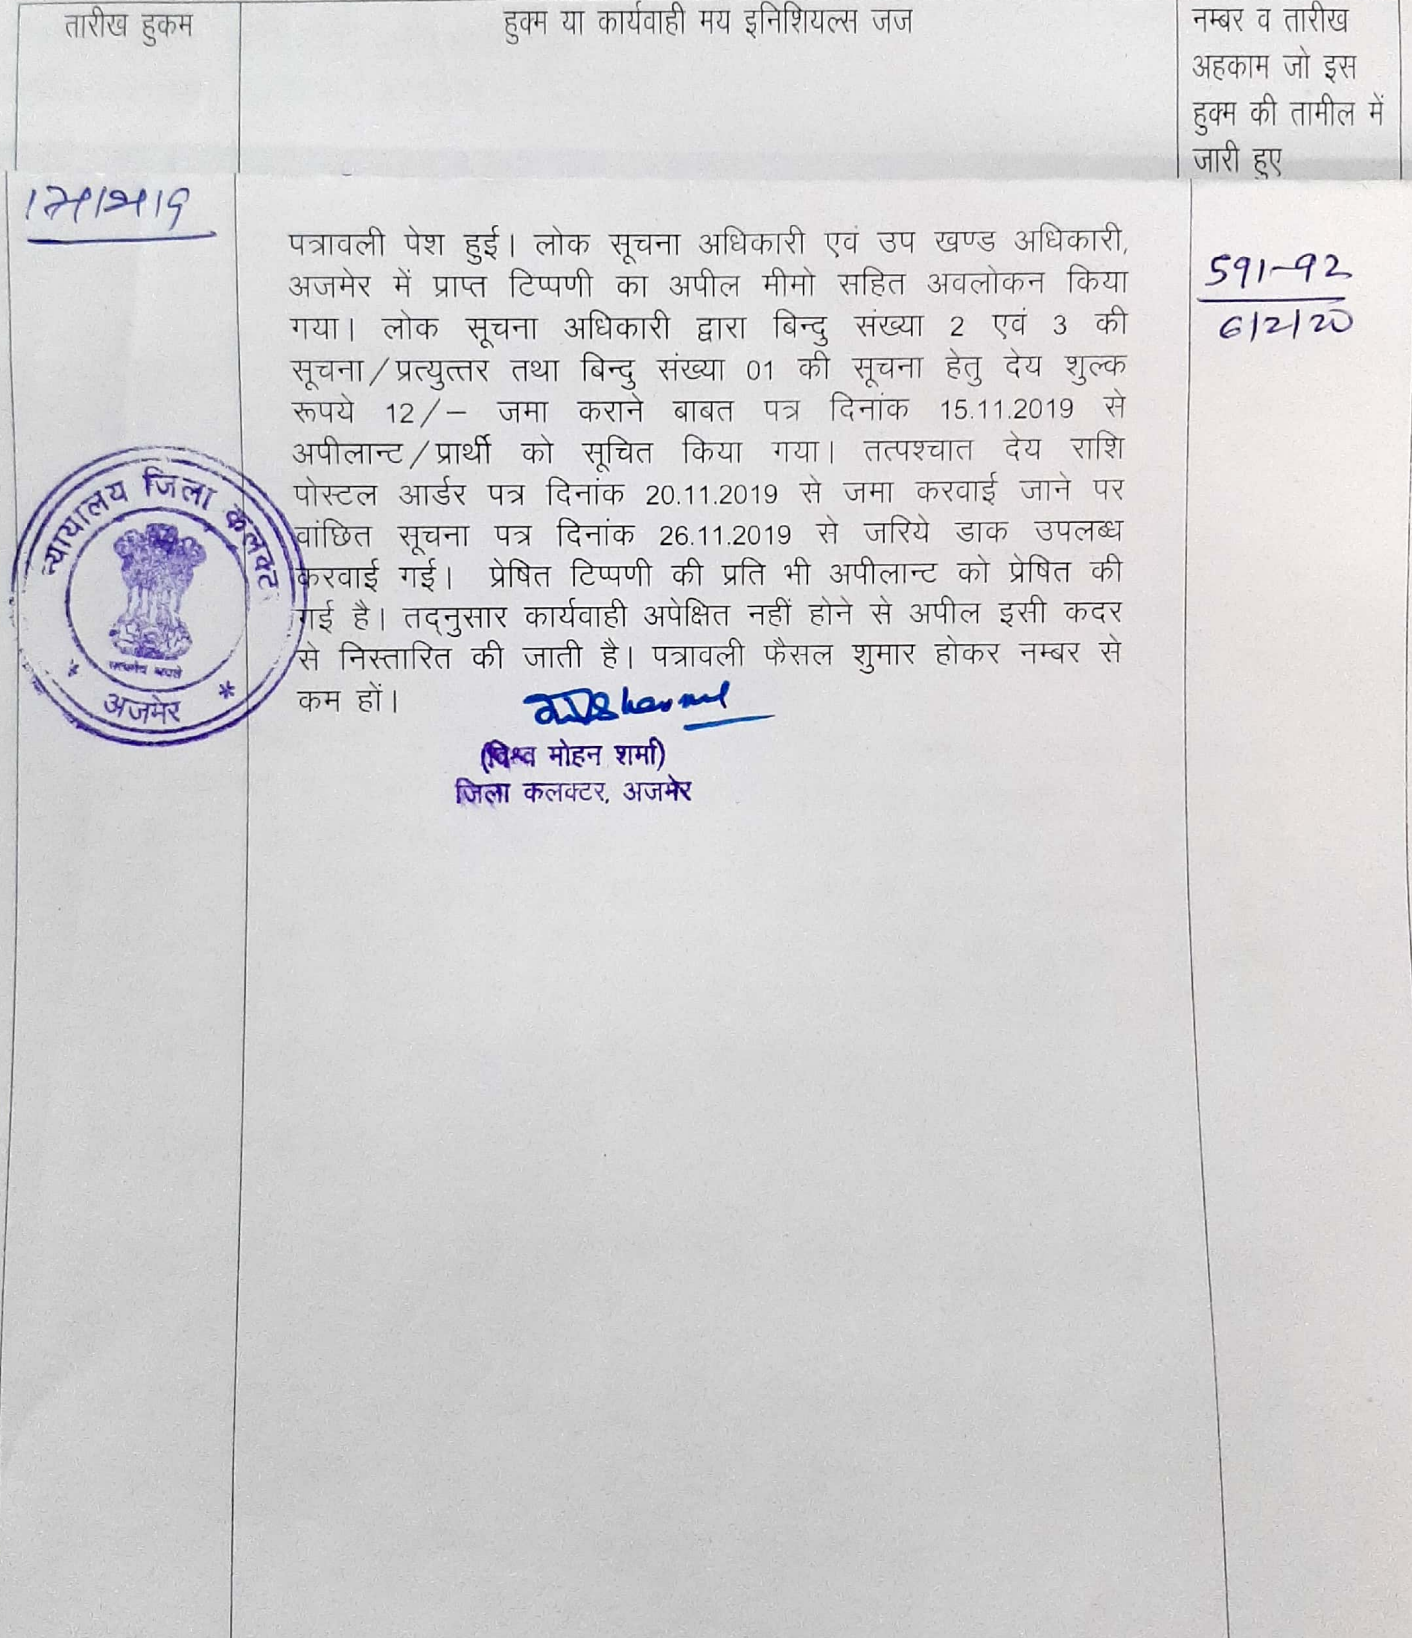 तारीख हुकम
हुक्म या कार्यवाही मय इनिशियल्स जज
नम्बर व तारीख
अहकाम जो इस
हुक्म की तामील में
जारी हुए
पत्रावली पेश हुई। लोक सूचना अधिकारी एवं उप खण्ड अधिकारी,
अजमेर में प्राप्त टिप्पणी का अपील मीमो सहित अवलोकन किया
गया। लोक सूचना अधिकारी द्वारा बिन्दु संख्या 2 एवं 3 की
सूचना/प्रत्युत्तर तथा बिन्दु संख्या 01 की सूचना हेतु देय शुल्क
रूपये 12/– जमा कराने बाबत पत्र दिनांक 15.11.2019 से
अपीलान्ट/प्रार्थी को सूचित किया गया। तत्पश्चात देय राशि
पोस्टल आर्डर पत्र दिनांक 20.11.2019 से जमा करवाई जाने पर
वांछित सूचना पत्र दिनांक 26.11.2019 से जरिये डाक उपलब्ध
करवाई गई। प्रेषित टिप्पणी की प्रति भी अपीलान्ट को प्रेषित की
गई है। तद्नुसार कार्यवाही अपेक्षित नहीं होने से अपील इसी कदर
से निस्तारित की जाती है। पत्रावली फैसल शुमार होकर नम्बर से
कम हों।
(विश्व मोहन शर्मा)
जिला कलक्टर, अजमेर
591-92
6/2/20
न्यायालय जिला कलक्ट
* अजमेर *